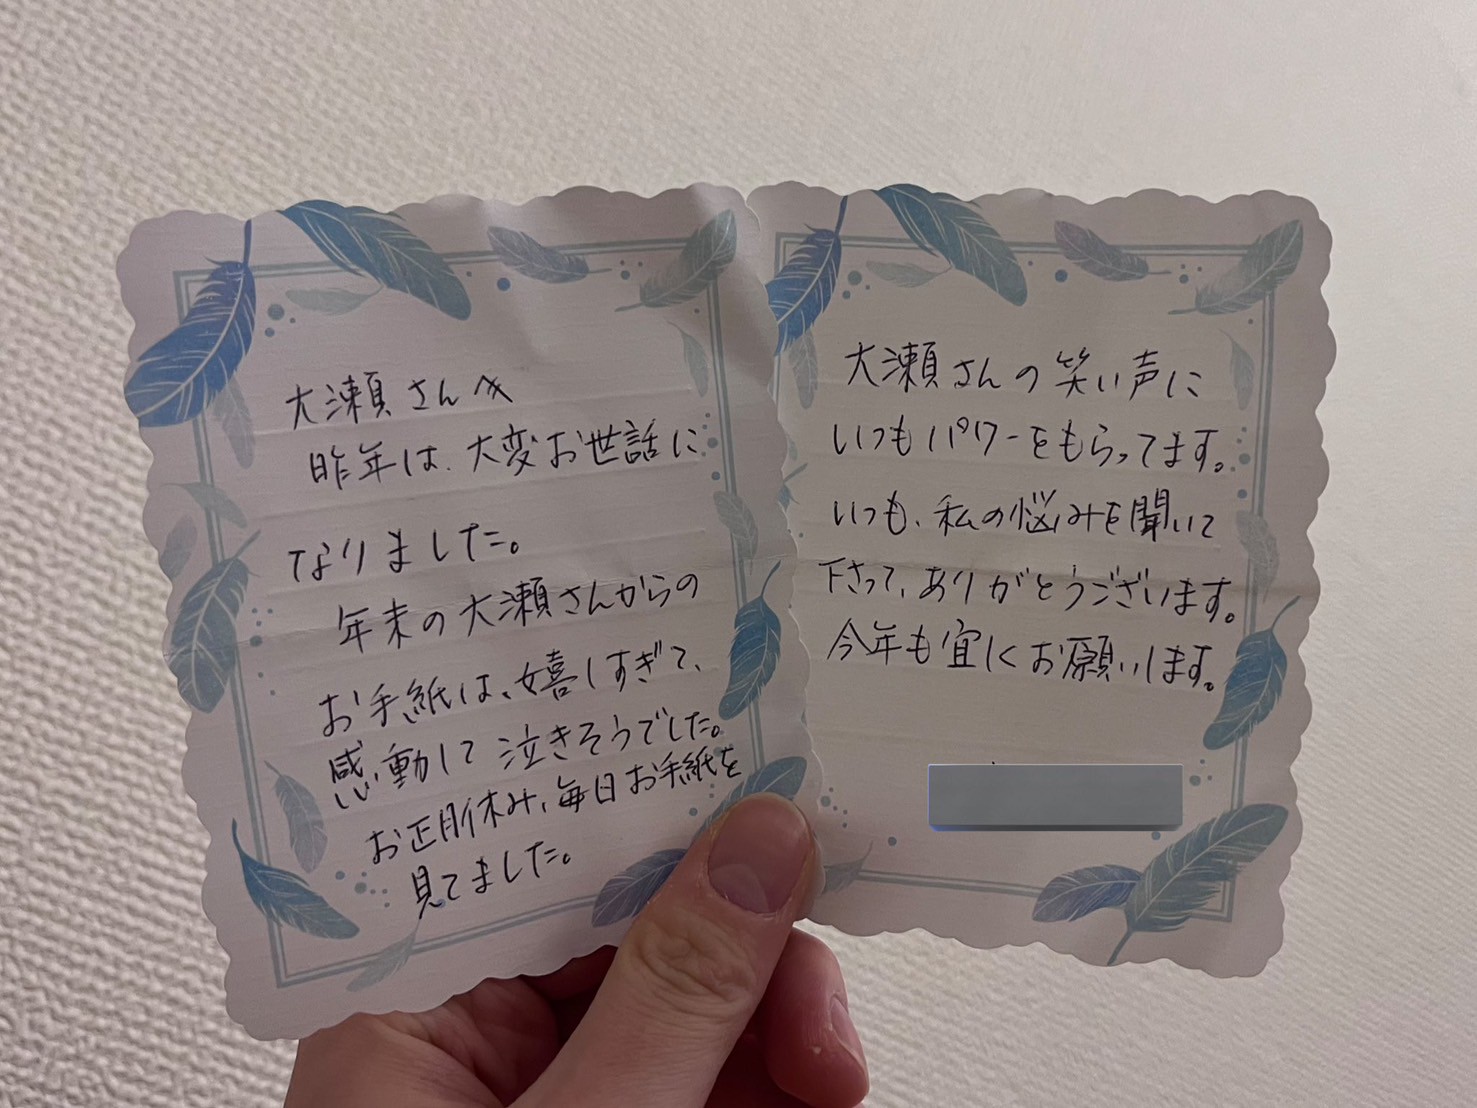 大瀬さんへ
昨年は、大変お世話に
なりました。
年末の大瀬さんからの
お手紙は、嬉しすぎて、
感動して泣きそうでした。
お正月休み、毎日お手紙を
見てました。
大瀬さんの笑い声に
いつもパワーをもらってます。
いつも、私の悩みを聞いて
下さって、ありがとうございます。
今年も宜しくお願いします。